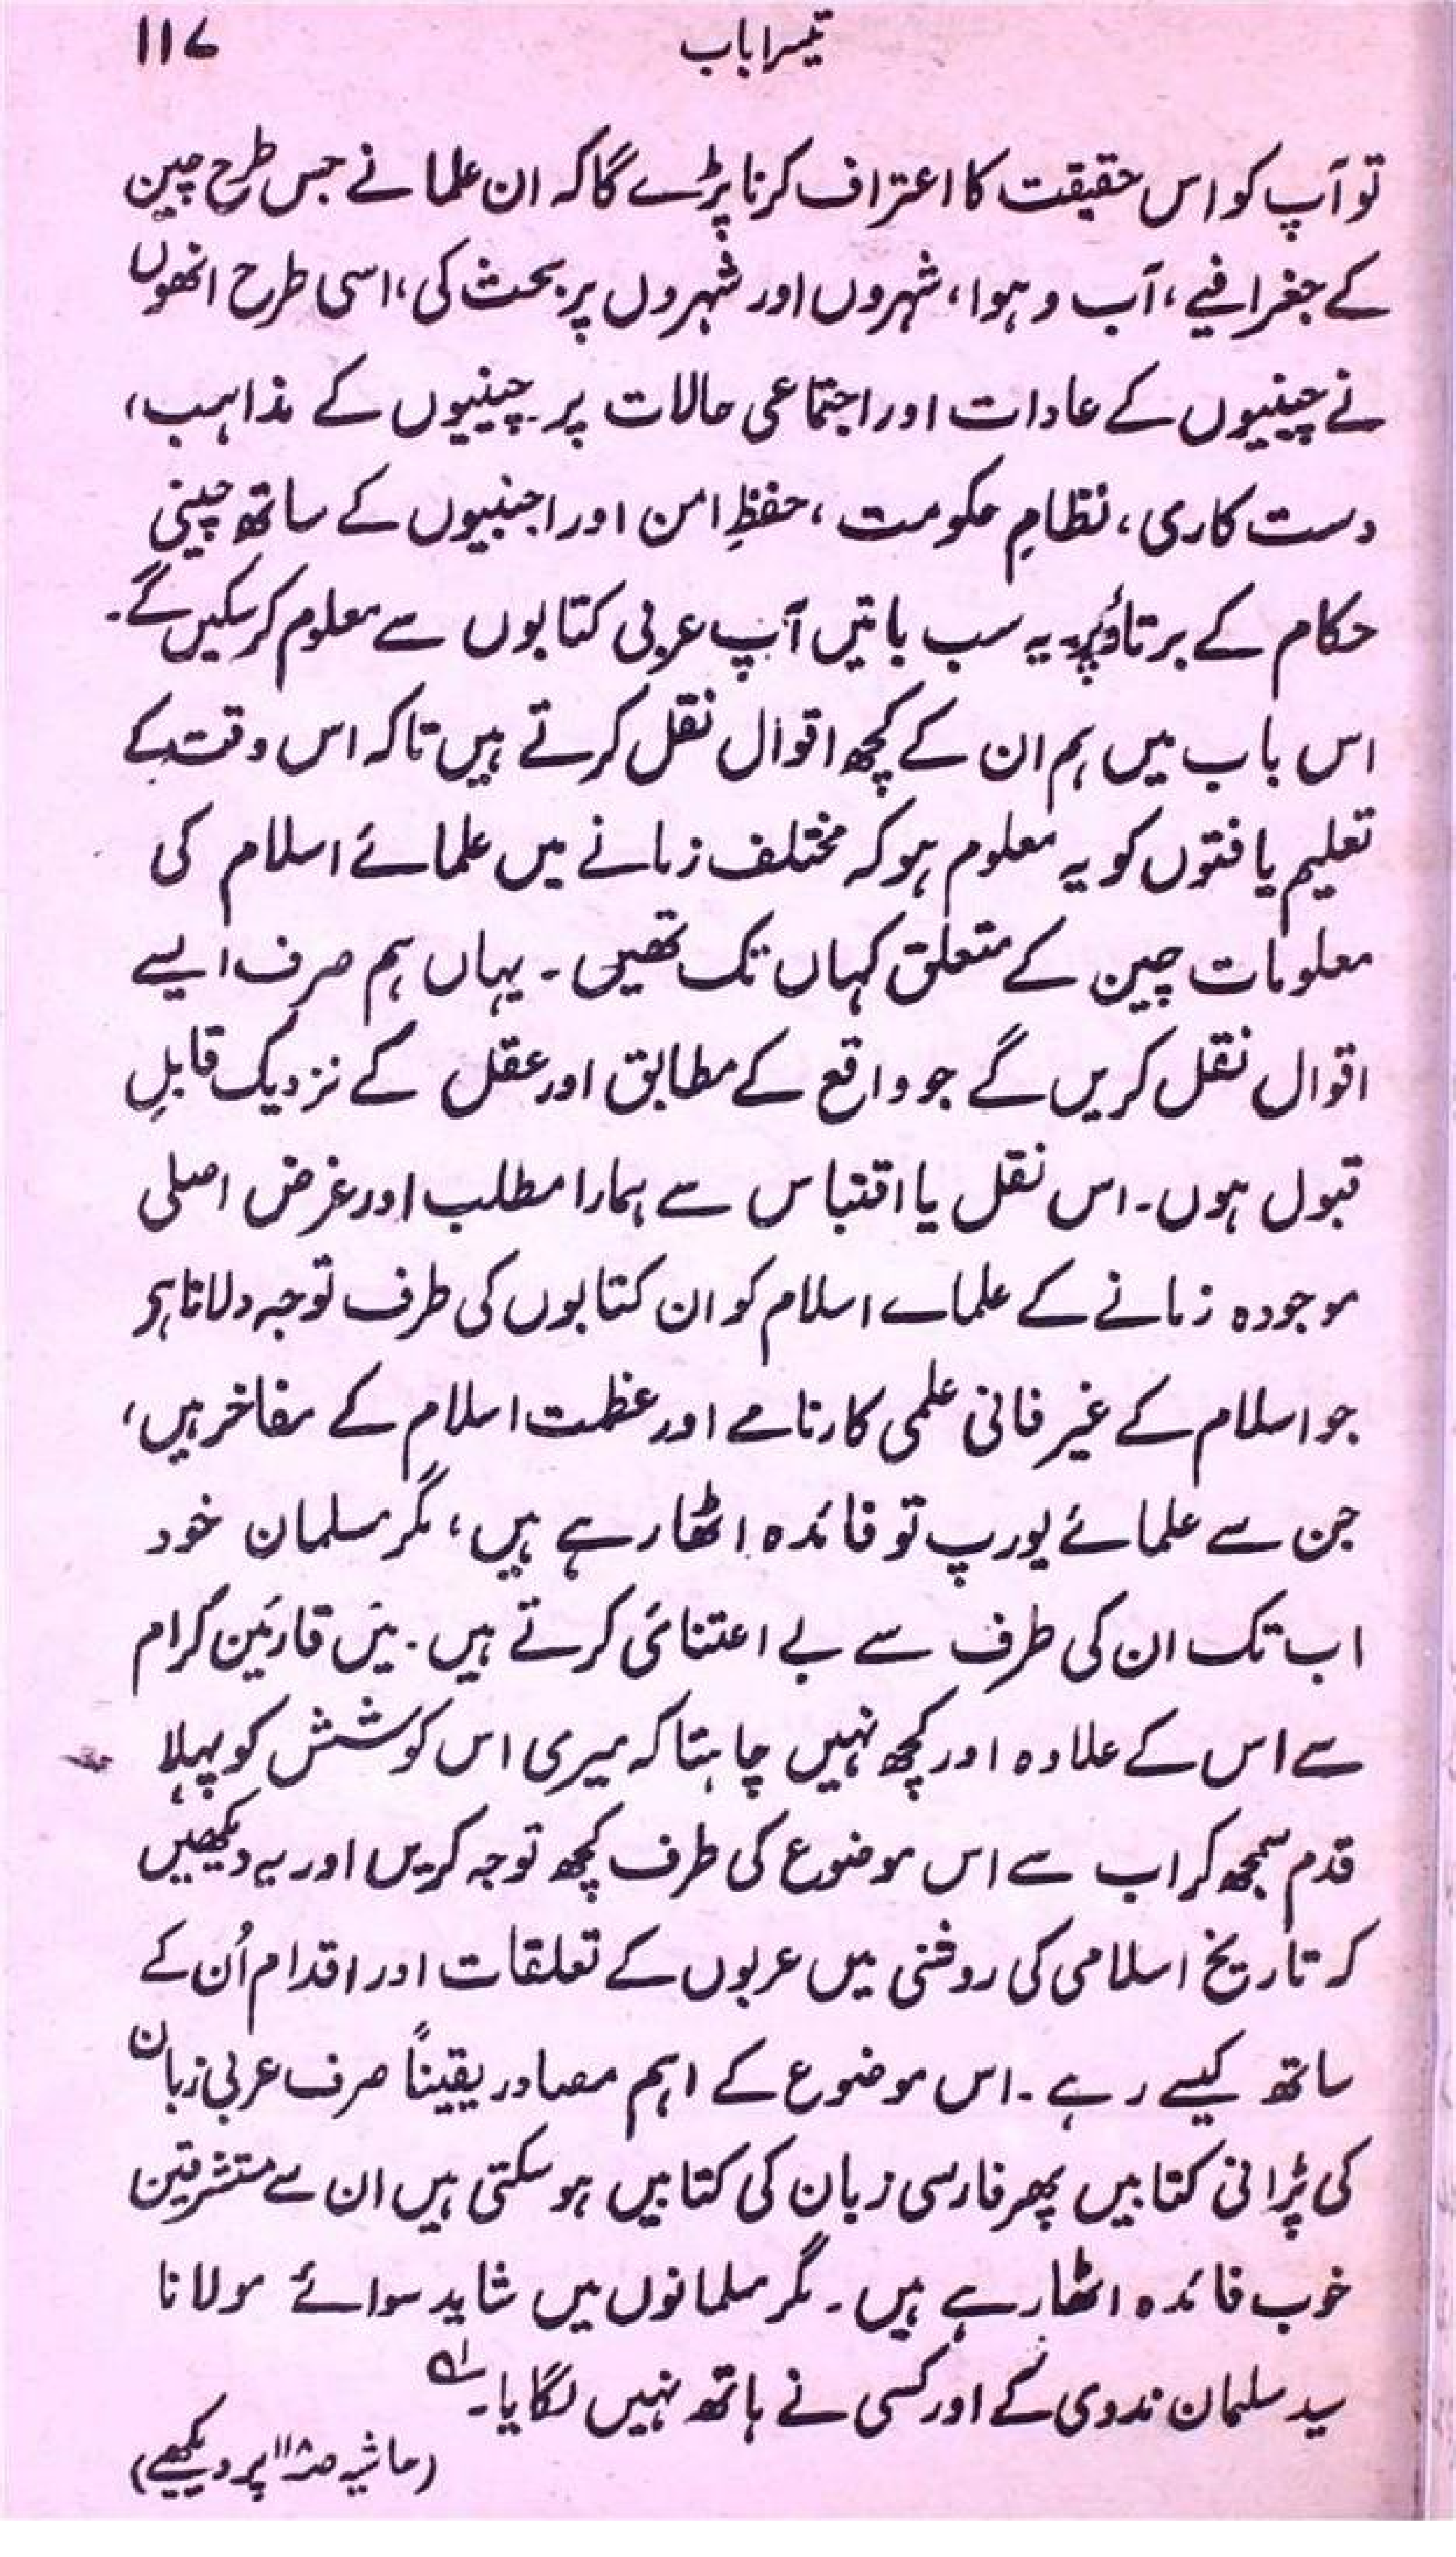 تیسرا باب ۱۱۷
تو آپ کو اس حقیقت کا اعتراف کرنا پڑے گا کہ ان علما نے جس طرح چین
کے جغرافیے، آب و ہوا، شہروں اور شہروں پر بحث کی، اسی طرح انھوں
نے چینیوں کے عادات اور اجتماعی حالات پر۔ چینیوں کے مذاہب،
دست کاری، نظامِ حکومت، حفظِ امن اور اجنبیوں کے ساتھ چینی
حکام کے برتاؤ پر یہ سب باتیں آپ عربی کتابوں سے معلوم کرسکیں گے۔
اس باب میں ہم ان کے کچھ اقوال نقل کرتے ہیں تاکہ اس وقت کے
تعلیم یافتوں کو یہ معلوم ہو کہ مختلف زمانے میں علمائے اسلام کی
معلومات چین کے متعلق کہاں تک تھیں۔ یہاں ہم صرف ایسے
اقوال نقل کریں گے جو واقع کے مطابق اور عقل کے نزدیک قابلِ
قبول ہوں۔ اس نقل یا اقتباس سے ہمارا مطلب اور غرض اصلی
موجودہ زمانے کے علماے اسلام کو ان کتابوں کی طرف توجہ دلانا ہو
جو اسلام کے غیر فانی علمی کارنامے اور عظمت اسلام کے مفاخر ہیں،
جن سے علمائے یورپ تو فائدہ اٹھا رہے ہیں، مگر مسلمان خود
اب تک ان کی طرف سے بے اعتنائی کرتے ہیں۔ میں قارئین کرام
سے اس کے علاوہ اور کچھ نہیں چاہتا کہ میری اس کوشش کو پہلا
قدم سمجھ کر اب سے اس موضوع کی طرف کچھ توجہ کریں اور یہ دیکھیں
کہ تاریخ اسلامی کی روشنی میں عربوں کے تعلقات اور اقدام اُن کے
ساتھ کیسے رہے۔ اس موضوع کے اہم مصادر یقیناً صرف عربی زبان
کی پُرانی کتابیں پھر فارسی زبان کی کتابیں ہوسکتی ہیں ان سے مستشرقین
خوب فائدہ اٹھا رہے ہیں۔ مگر مسلمانوں میں شاید سوائے مولانا
سید سلیمان ندوی کے اور کسی نے ہاتھ نہیں لگایا۔ لہ
(حاشیہ صفحہ ۱۱۸ پر دیکھیے)